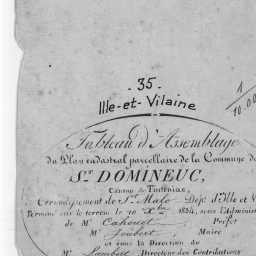 - 35 -
Ille-et-Vilaine
1
Tableau d'Assemblage
du Plan cadastral parcellaire de la Commune de
St. DOMINEUC,
Canton de Tinténiac,
Arrondissement de St. Malo Dépt. d'Ille et V
Terminé sur le terrain le 10 Xbre 1834, sous l'Administra
de Mr. Préfet
Mr. Joubert, Maire
et sous la Direction de
Mr. Lambert Directeur des Contributions